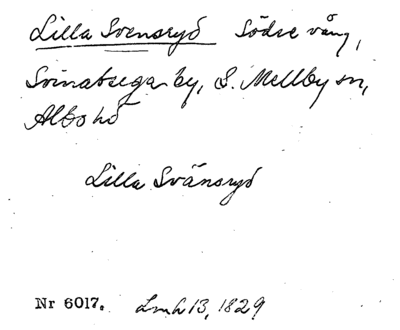 Lilla Svensryd Södre vång,
Svinabsega by, S. Mellby sn,
Albo hd
Lilla Svänsryd
Nr 6017. Lmh 13, 1829